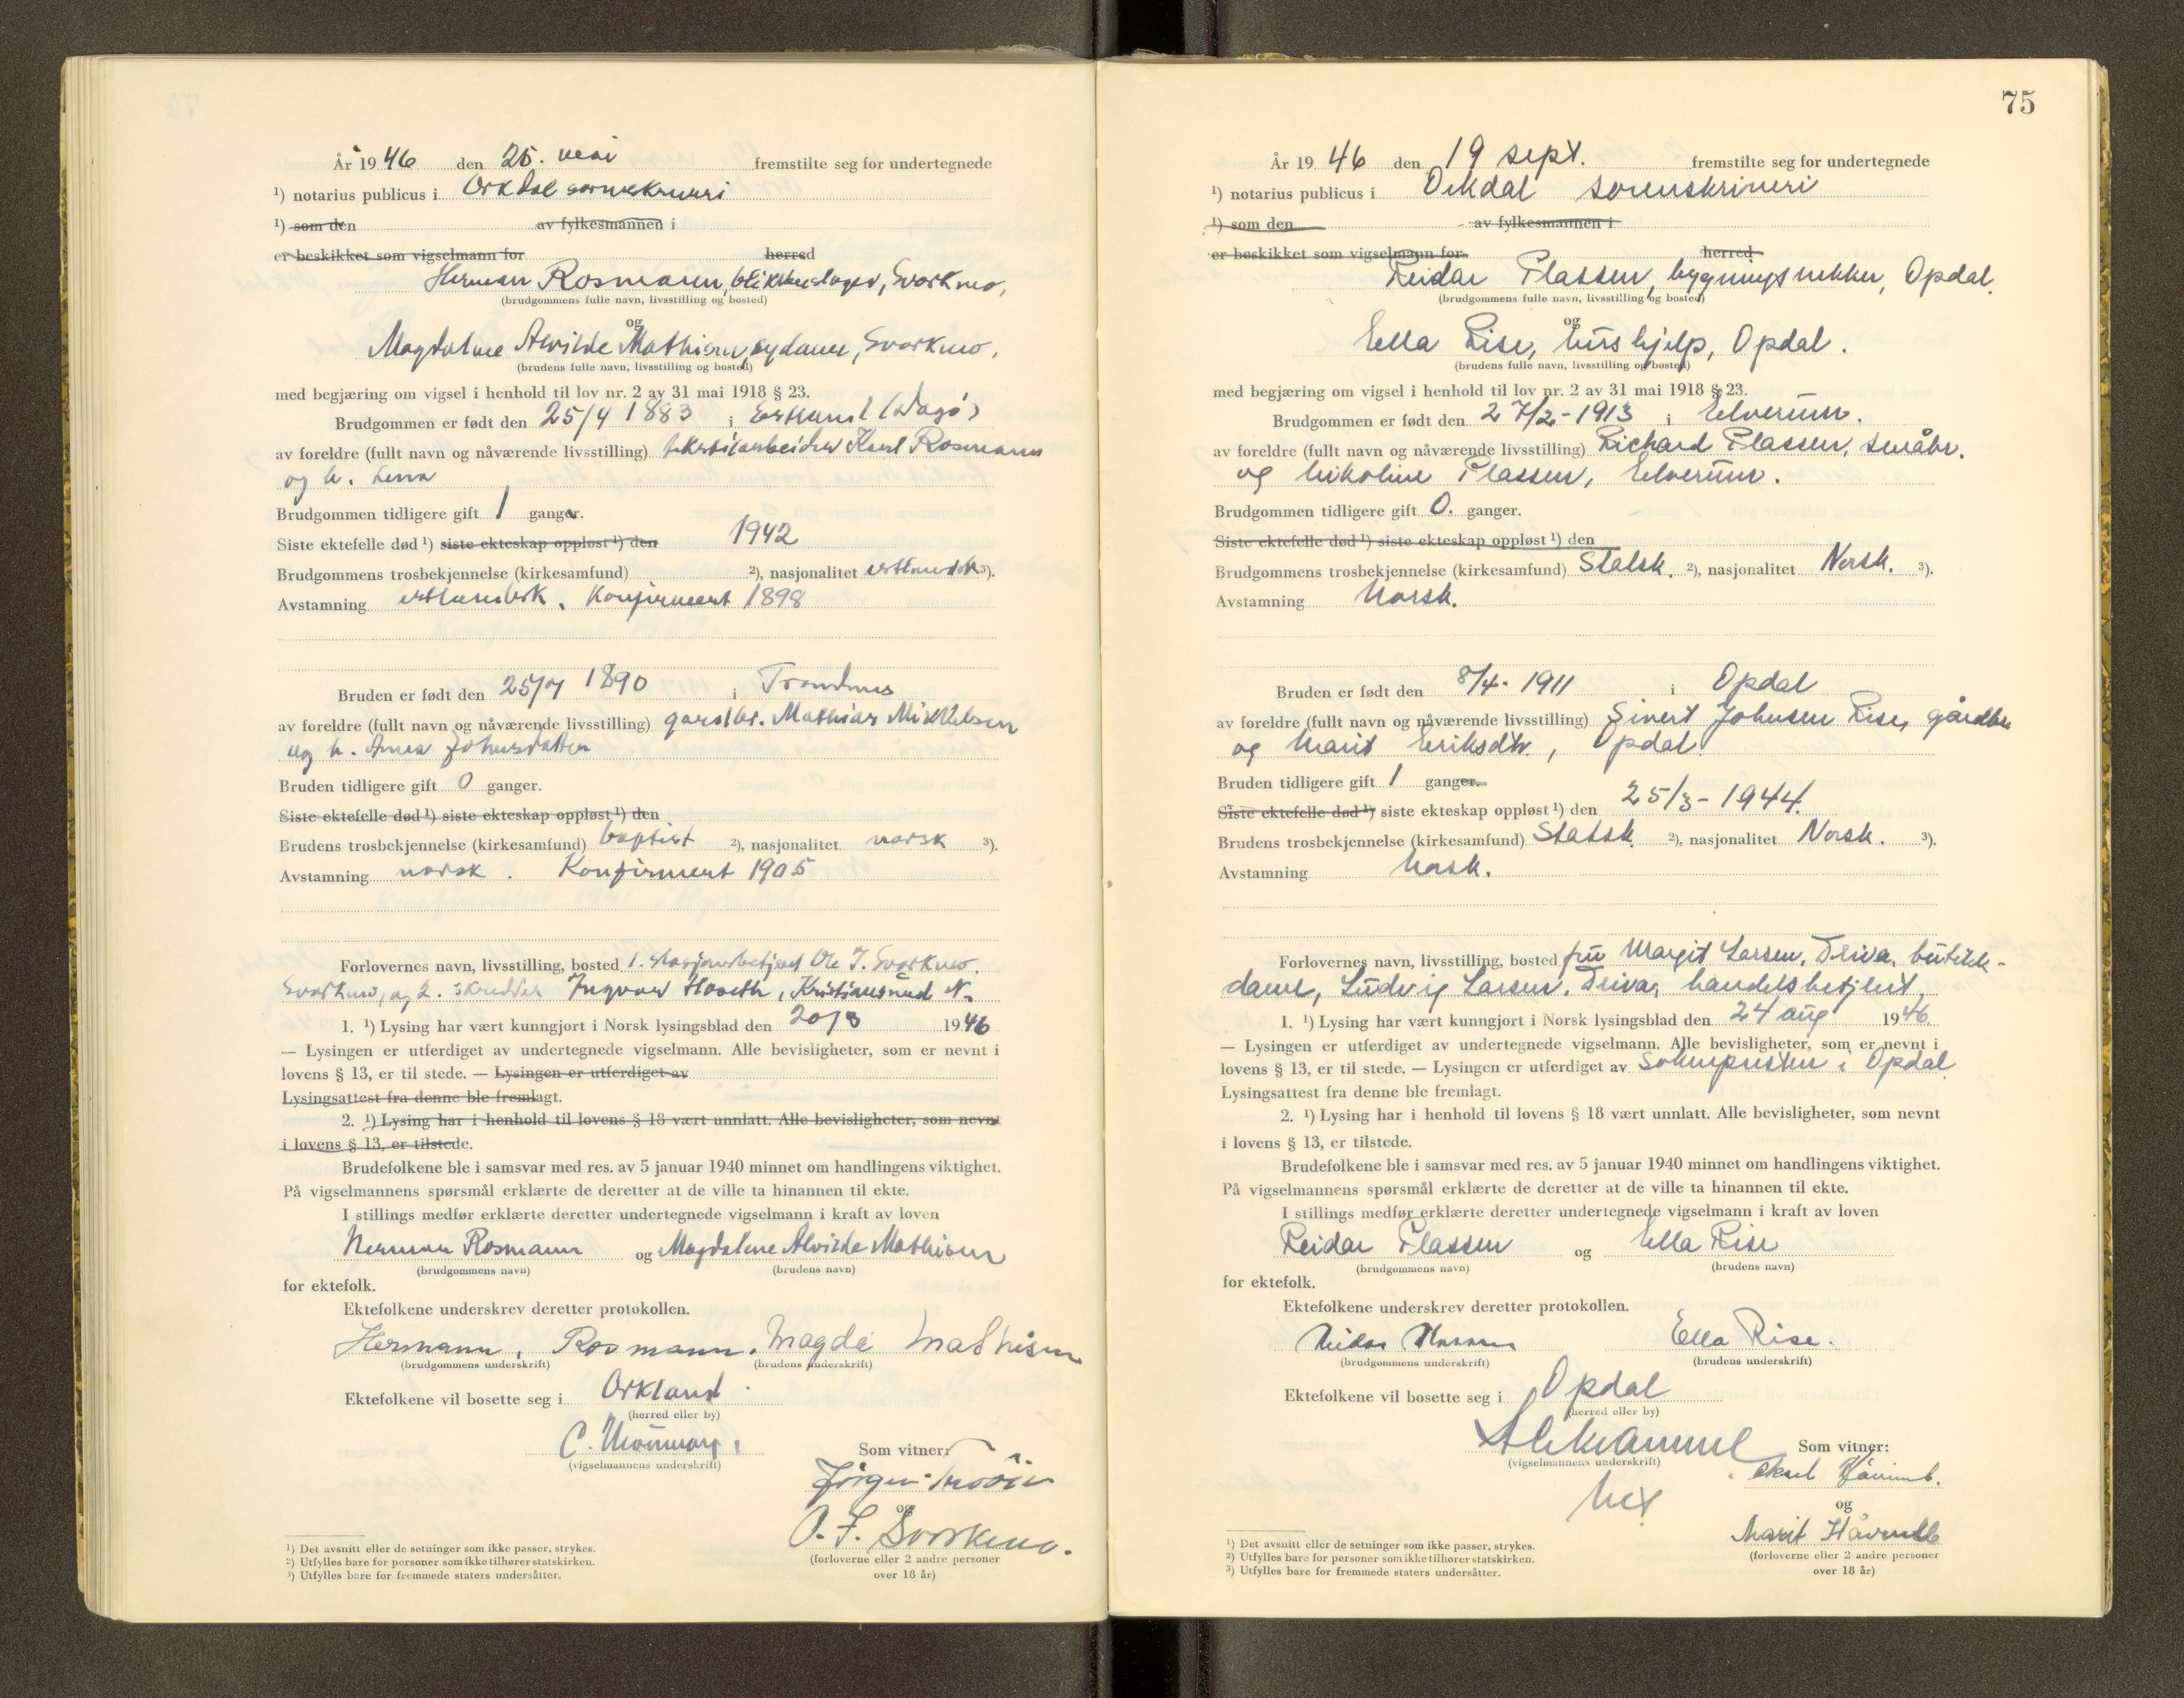 År 1946 den 25. mai fremstilte seg for undertegnede
¹) notarius publicus i Orkdal sorenskriveri
¹) som den av fylkesmannen i
er beskikket som vigselmann for herred
Herman Rosmann, blikkenslager, Svorkmo,
(brudgommens fulle navn, livsstilling og bosted)
og
Magdalene Alvilde Mathisen, sydame, Svorkmo,
(brudens fulle navn, livsstilling og bosted)
med begjæring om vigsel i henhold til lov nr. 2 av 31 mai 1918 § 23.
Brudgommen er født den 25/4 1883 i Estland (Dagö)
av foreldre (fullt navn og nåværende livsstilling) tekstilarbeider Karl Rosmann
og h. Lena
Brudgommen tidligere gift 1 ganger.
Siste ektefelle død ¹) siste ekteskap oppløst ¹) den 1942
Brudgommens trosbekjennelse (kirkesamfund) ²), nasjonalitet estlandsk ³).
Avstamning estlandsk. Konfirmert 1898
Bruden er født den 25/7 1890 i Trondenes
av foreldre (fullt navn og nåværende livsstilling) gardbr. Mathias Mikkelsen
og h. Anna Johnsdatter
Bruden tidligere gift 0 ganger.
Siste ektefelle død ¹) siste ekteskap oppløst ¹) den
Brudens trosbekjennelse (kirkesamfund) baptist ²), nasjonalitet norsk ³).
Avstamning norsk. Konfirmert 1905
Forlovernes navn, livsstilling, bosted 1. stasjonsbetjent Ole J. Svorkmo.
Svorkmo, og 2. skredder Ingvar Hoseth, Kristiansund N.
1. ¹) Lysing har vært kunngjort i Norsk lysingsblad den 20/3 1946
— Lysingen er utferdiget av undertegnede vigselmann. Alle bevisligheter, som er nevnt i
lovens § 13, er til stede. — Lysingen er utferdiget av
Lysingsattest fra denne ble fremlagt.
2. ¹) Lysing har i henhold til lovens § 18 vært unnlatt. Alle bevisligheter, som nevnt
i lovens § 13, er tilstede.
Brudefolkene ble i samsvar med res. av 5 januar 1940 minnet om handlingens viktighet.
På vigselmannens spørsmål erklærte de deretter at de ville ta hinannen til ekte.
I stillings medfør erklærte deretter undertegnede vigselmann i kraft av loven
Herman Rosmann og Magdalene Alvilde Mathisen
(brudgommens navn) (brudens navn)
for ektefolk.
Ektefolkene underskrev deretter protokollen.
Hermann, Rosmann. Magda Mathisen
(brudgommens underskrift) (brudens underskrift)
Ektefolkene vil bosette seg i Orkland.
(herred eller by)
C.
(vigselmannens underskrift)
Som vitner:
Jörgen
og
O. J. Svorkmo.
(forloverne eller 2 andre personer
over 18 år)
¹) Det avsnitt eller de setninger som ikke passer, strykes.
²) Utfylles bare for personer som ikke tilhører statskirken.
³) Utfylles bare for fremmede staters undersåtter.
75
År 1946 den 19 sept. fremstilte seg for undertegnede
¹) notarius publicus i Orkdal sorenskriveri
¹) som den av fylkesmannen i
er beskikket som vigselmann for herred
Reidar Plassen, bygningssnekker, Opdal.
(brudgommens fulle navn, livsstilling og bosted)
og
Ella Rise, hushjelp, Opdal.
(brudens fulle navn, livsstilling og bosted)
med begjæring om vigsel i henhold til lov nr. 2 av 31 mai 1918 § 23.
Brudgommen er født den 27/2-1913 i Elverum.
av foreldre (fullt navn og nåværende livsstilling) Richard Plassen, småbr.
og Nikoline Plassen, Elverum.
Brudgommen tidligere gift 0. ganger.
Siste ektefelle død ¹) siste ekteskap oppløst ¹) den
Brudgommens trosbekjennelse (kirkesamfund) Statsk. ²), nasjonalitet Norsk. ³).
Avstamning Norsk.
Bruden er født den 8/4-1911 i Opdal
av foreldre (fullt navn og nåværende livsstilling) Sivert Johnsen Rise, gårdbr.
og Marit Eriksdtr., Opdal.
Bruden tidligere gift 1 ganger.
Siste ektefelle død ¹) siste ekteskap oppløst ¹) den 25/3-1944.
Brudens trosbekjennelse (kirkesamfund) Statsk. ²), nasjonalitet Norsk. ³).
Avstamning Norsk.
Forlovernes navn, livsstilling, bosted fru Margit Larsen, Driva, butikk-
dame, Ludvig Larsen, Driva, handelsbetjent.
1. ¹) Lysing har vært kunngjort i Norsk lysingsblad den 24 aug 1946.
— Lysingen er utferdiget av undertegnede vigselmann. Alle bevisligheter, som er nevnt i
lovens § 13, er til stede. — Lysingen er utferdiget av Soknepresten i Opdal
Lysingsattest fra denne ble fremlagt.
2. ¹) Lysing har i henhold til lovens § 18 vært unnlatt. Alle bevisligheter, som nevnt
i lovens § 13, er tilstede.
Brudefolkene ble i samsvar med res. av 5 januar 1940 minnet om handlingens viktighet.
På vigselmannens spørsmål erklærte de deretter at de ville ta hinannen til ekte.
I stillings medfør erklærte deretter undertegnede vigselmann i kraft av loven
Reidar Plassen og Ella Rise
(brudgommens navn) (brudens navn)
for ektefolk.
Ektefolkene underskrev deretter protokollen.
Reidar Plassen Ella Rise.
(brudgommens underskrift) (brudens underskrift)
Ektefolkene vil bosette seg i Opdal
(herred eller by)
(vigselmannens underskrift)
Som vitner:
og
Marit
(forloverne eller 2 andre personer
over 18 år)
¹) Det avsnitt eller de setninger som ikke passer, strykes.
²) Utfylles bare for personer som ikke tilhører statskirken.
³) Utfylles bare for fremmede staters undersåtter.